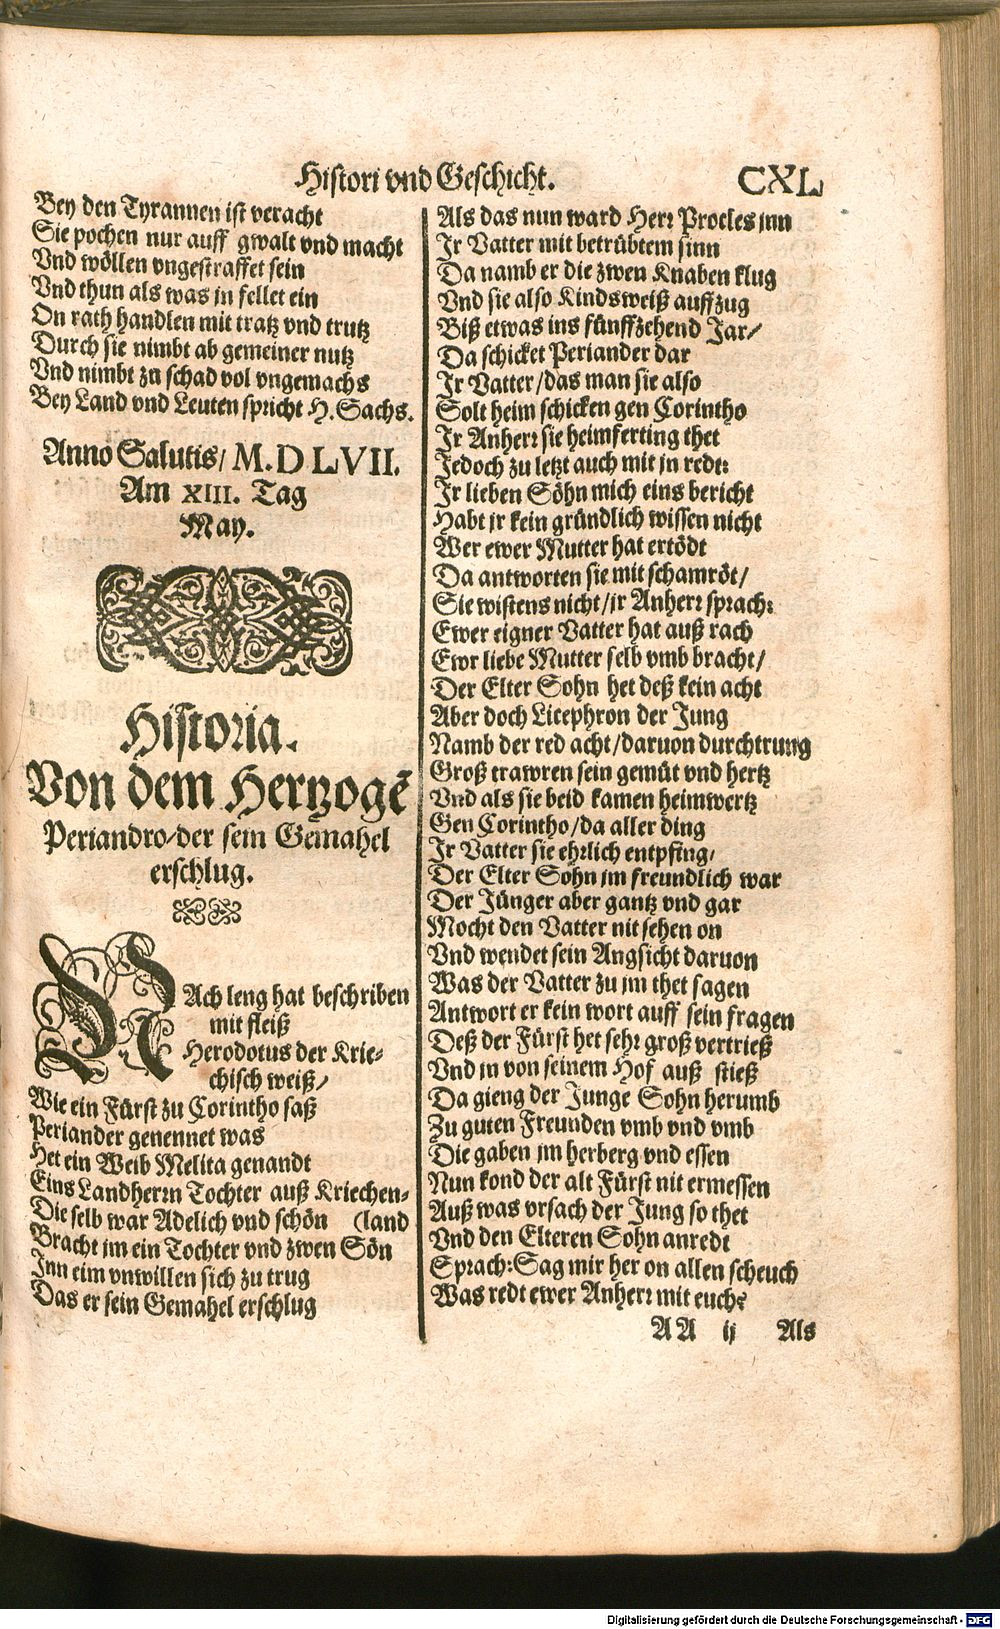 Histori vnd Geschicht. CXL
Bey den Tyrannen ist veracht
Sie pochen nur auff gwalt vnd macht
Vnd wöllen vngestraffet sein
Vnd thun als was in fellet ein
On rath handlen mit tratz vnd trutz
Durch sie nimbt ab gemeiner nutz
Vnd nimbt zu schad vol vngemachs
Bey Land vnd Leuten spricht H. Sachs.
Anno Salutis/ M.D LVII.
Am XIII. Tag
May.
Historia.
Von dem Hertzogē
Periandro/der sein Gemahel
erschlug.
NAch leng hat beschriben
mit fleiß
Herodotus der Krie-
chisch weiß/
Wie ein Fürst zu Corintho saß
Periander genennet was
Het ein Weib Melita genandt
Eins Landherrn Tochter auß Kriechen-
Die selb war Adelich vnd schön (land
Bracht im ein Tochter vnd zwen Sön
Inn eim vnwillen sich zu trug
Das er sein Gemahel erschlug
Als das nun ward Herr Procles inn
Ir Vatter mit betrübtem sinn
Da namb er die zwen Knaben klug
Vnd sie also Kindsweiß auffzug
Biß etwas ins fünffzehend Jar/
Da schicket Periander dar
Ir Vatter/das man sie also
Solt heim schicken gen Corintho
Ir Anherr sie heimferting thet
Jedoch zu letzt auch mit in redt:
Ir lieben Söhn mich eins bericht
Habt ir kein gründlich wissen nicht
Wer ewer Mutter hat ertödt
Da antworten sie mit schamröt/
Sie wistens nicht/ir Anherr sprach:
Ewer eigner Vatter hat auß rach
Ewr liebe Mutter selb vmb bracht/
Der Elter Sohn het deß kein acht
Aber doch Licephron der Jung
Namb der red acht/daruon durchtrung
Groß trawren sein gemüt vnd hertz
Vnd als sie beid kamen heimwertz
Gen Corintho/da aller ding
Ir Vatter sie ehrlich entpfing/
Der Elter Sohn im freundlich war
Der Jünger aber gantz vnd gar
Mocht den Vatter nit sehen on
Vnd wendet sein Angsicht daruon
Was der Vatter zu im thet sagen
Antwort er kein wort auff sein fragen
Deß der Fürst het sehr groß vertrieß
Vnd in von seinem Hof auß stieß
Da gieng der Junge Sohn herumb
Zu guten Freunden vmb vnd vmb
Die gaben im herberg vnd essen
Nun kond der alt Fürst nit ermessen
Auß was vrsach der Jung so thet
Vnd den Elteren Sohn anredt
Sprach: Sag mir her on allen scheuch
Was redt ewer Anherr mit euch?
AA ij Als
Digitalisierung gefördert durch die Deutsche Forschungsgemeinschaft - DFG